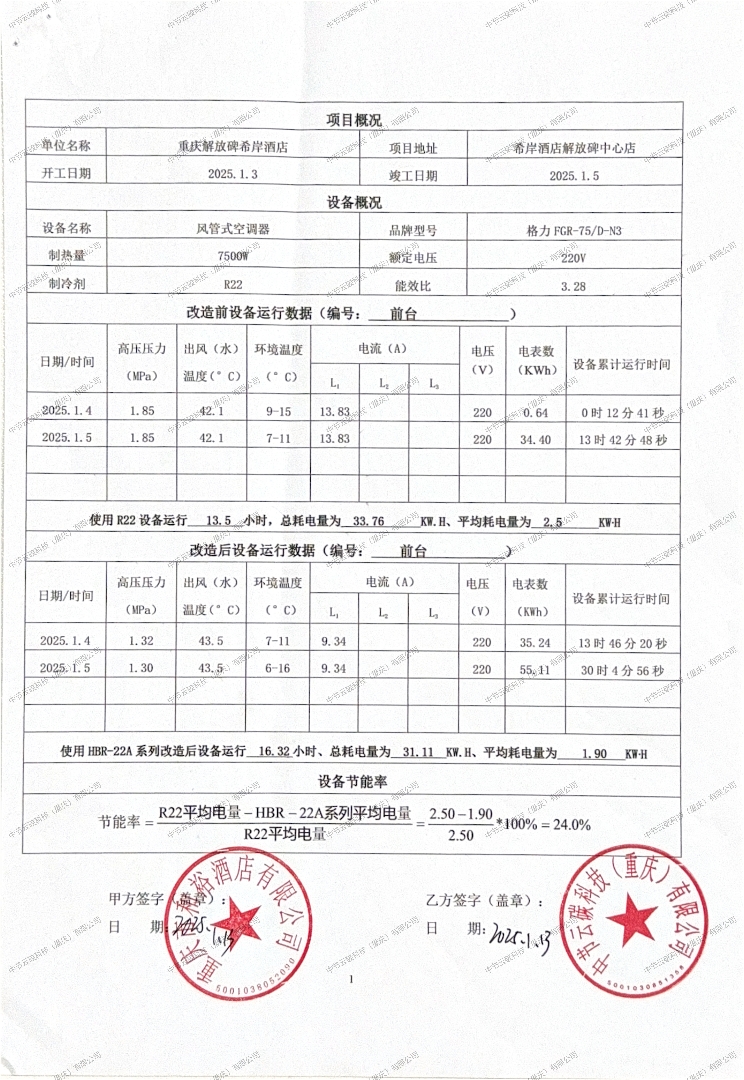 项目概况
单位名称 重庆解放碑希岸酒店 项目地址 希岸酒店解放碑中心店
开工日期 2025.1.3 竣工日期 2025.1.5
设备概况
设备名称 风管式空调器 品牌型号 格力 FGR-75/D-N3
制热量 7500W 额定电压 220V
制冷剂 R22 能效比 3.28
改造前设备运行数据（编号： 前台 ）
日期/时间 高压压力（MPa） 出风（水）温度(°C) 环境温度（°C） 电流（A） 电压（V） 电表数（KWh） 设备累计运行时间
L₁ L₂ L₃
2025.1.4 1.85 42.1 9-15 13.83 220 0.64 0时12分41秒
2025.1.5 1.85 42.1 7-11 13.83 220 34.40 13时42分48秒
使用 R22 设备运行 13.5 小时，总耗电量为 33.76 KW.H、平均耗电量为 2.5 KW·H
改造后设备运行数据（编号： 前台 ）
日期/时间 高压压力（MPa） 出风（水）温度(°C) 环境温度（°C） 电流（A） 电压（V） 电表数（KWh） 设备累计运行时间
L₁ L₂ L₃
2025.1.4 1.32 43.5 7-11 9.34 220 35.24 13时46分20秒
2025.1.5 1.30 43.5 6-16 9.34 220 55.11 30时4分56秒
使用 HBR-22A 系列改造后设备运行 16.32 小时、总耗电量为 31.11 KW.H、平均耗电量为 1.90 KW·H
设备节能率
节能率 = (R22平均电量 - HBR - 22A系列平均电量) / R22平均电量 = (2.50 - 1.90) / 2.50 *100% = 24.0%
甲方签字（盖章）： 乙方签字（盖章）：
日 期: 2025.1.13 日 期: 2025.1.13
裕酒店有限公司
5001038052090
中节云碳科技（重庆）有限公司
5001030851358
1
中节云碳科技（重庆）有限公司